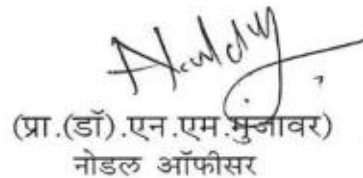 (प्रा.(डॉ).एन.एम.मुजावर)
नोडल ऑफीसर